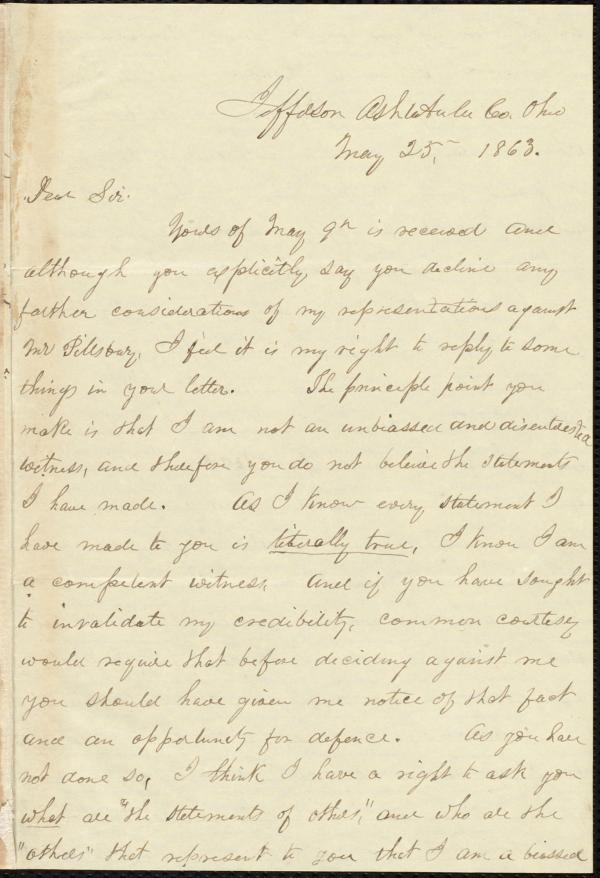 Jefferson Ashtabula Co. Ohio
May 25, 1863.
Dear Sir.
Yours of May 9th is received and
although you explicitly say you decline any
farther considerations of my representations against
Mr Pillsbury, I feel it is my right to reply to some
things in your letter. The principle point you
make is that I am not an unbiassed and disinterested
witness, and therefore you do not beleive the statements
I have made. As I know every statement I
have made to you is literally true, I know I am
a competent witness. And if you have sought
to invalidate my credibility, common courtesy
would require that before deciding against me
you should have given me notice of that fact
and an opportunity for defence. As you have
not done so, I think I have a right to ask you
what are "the statements of others," and who are the
"others" that represent to you that I am a biassed